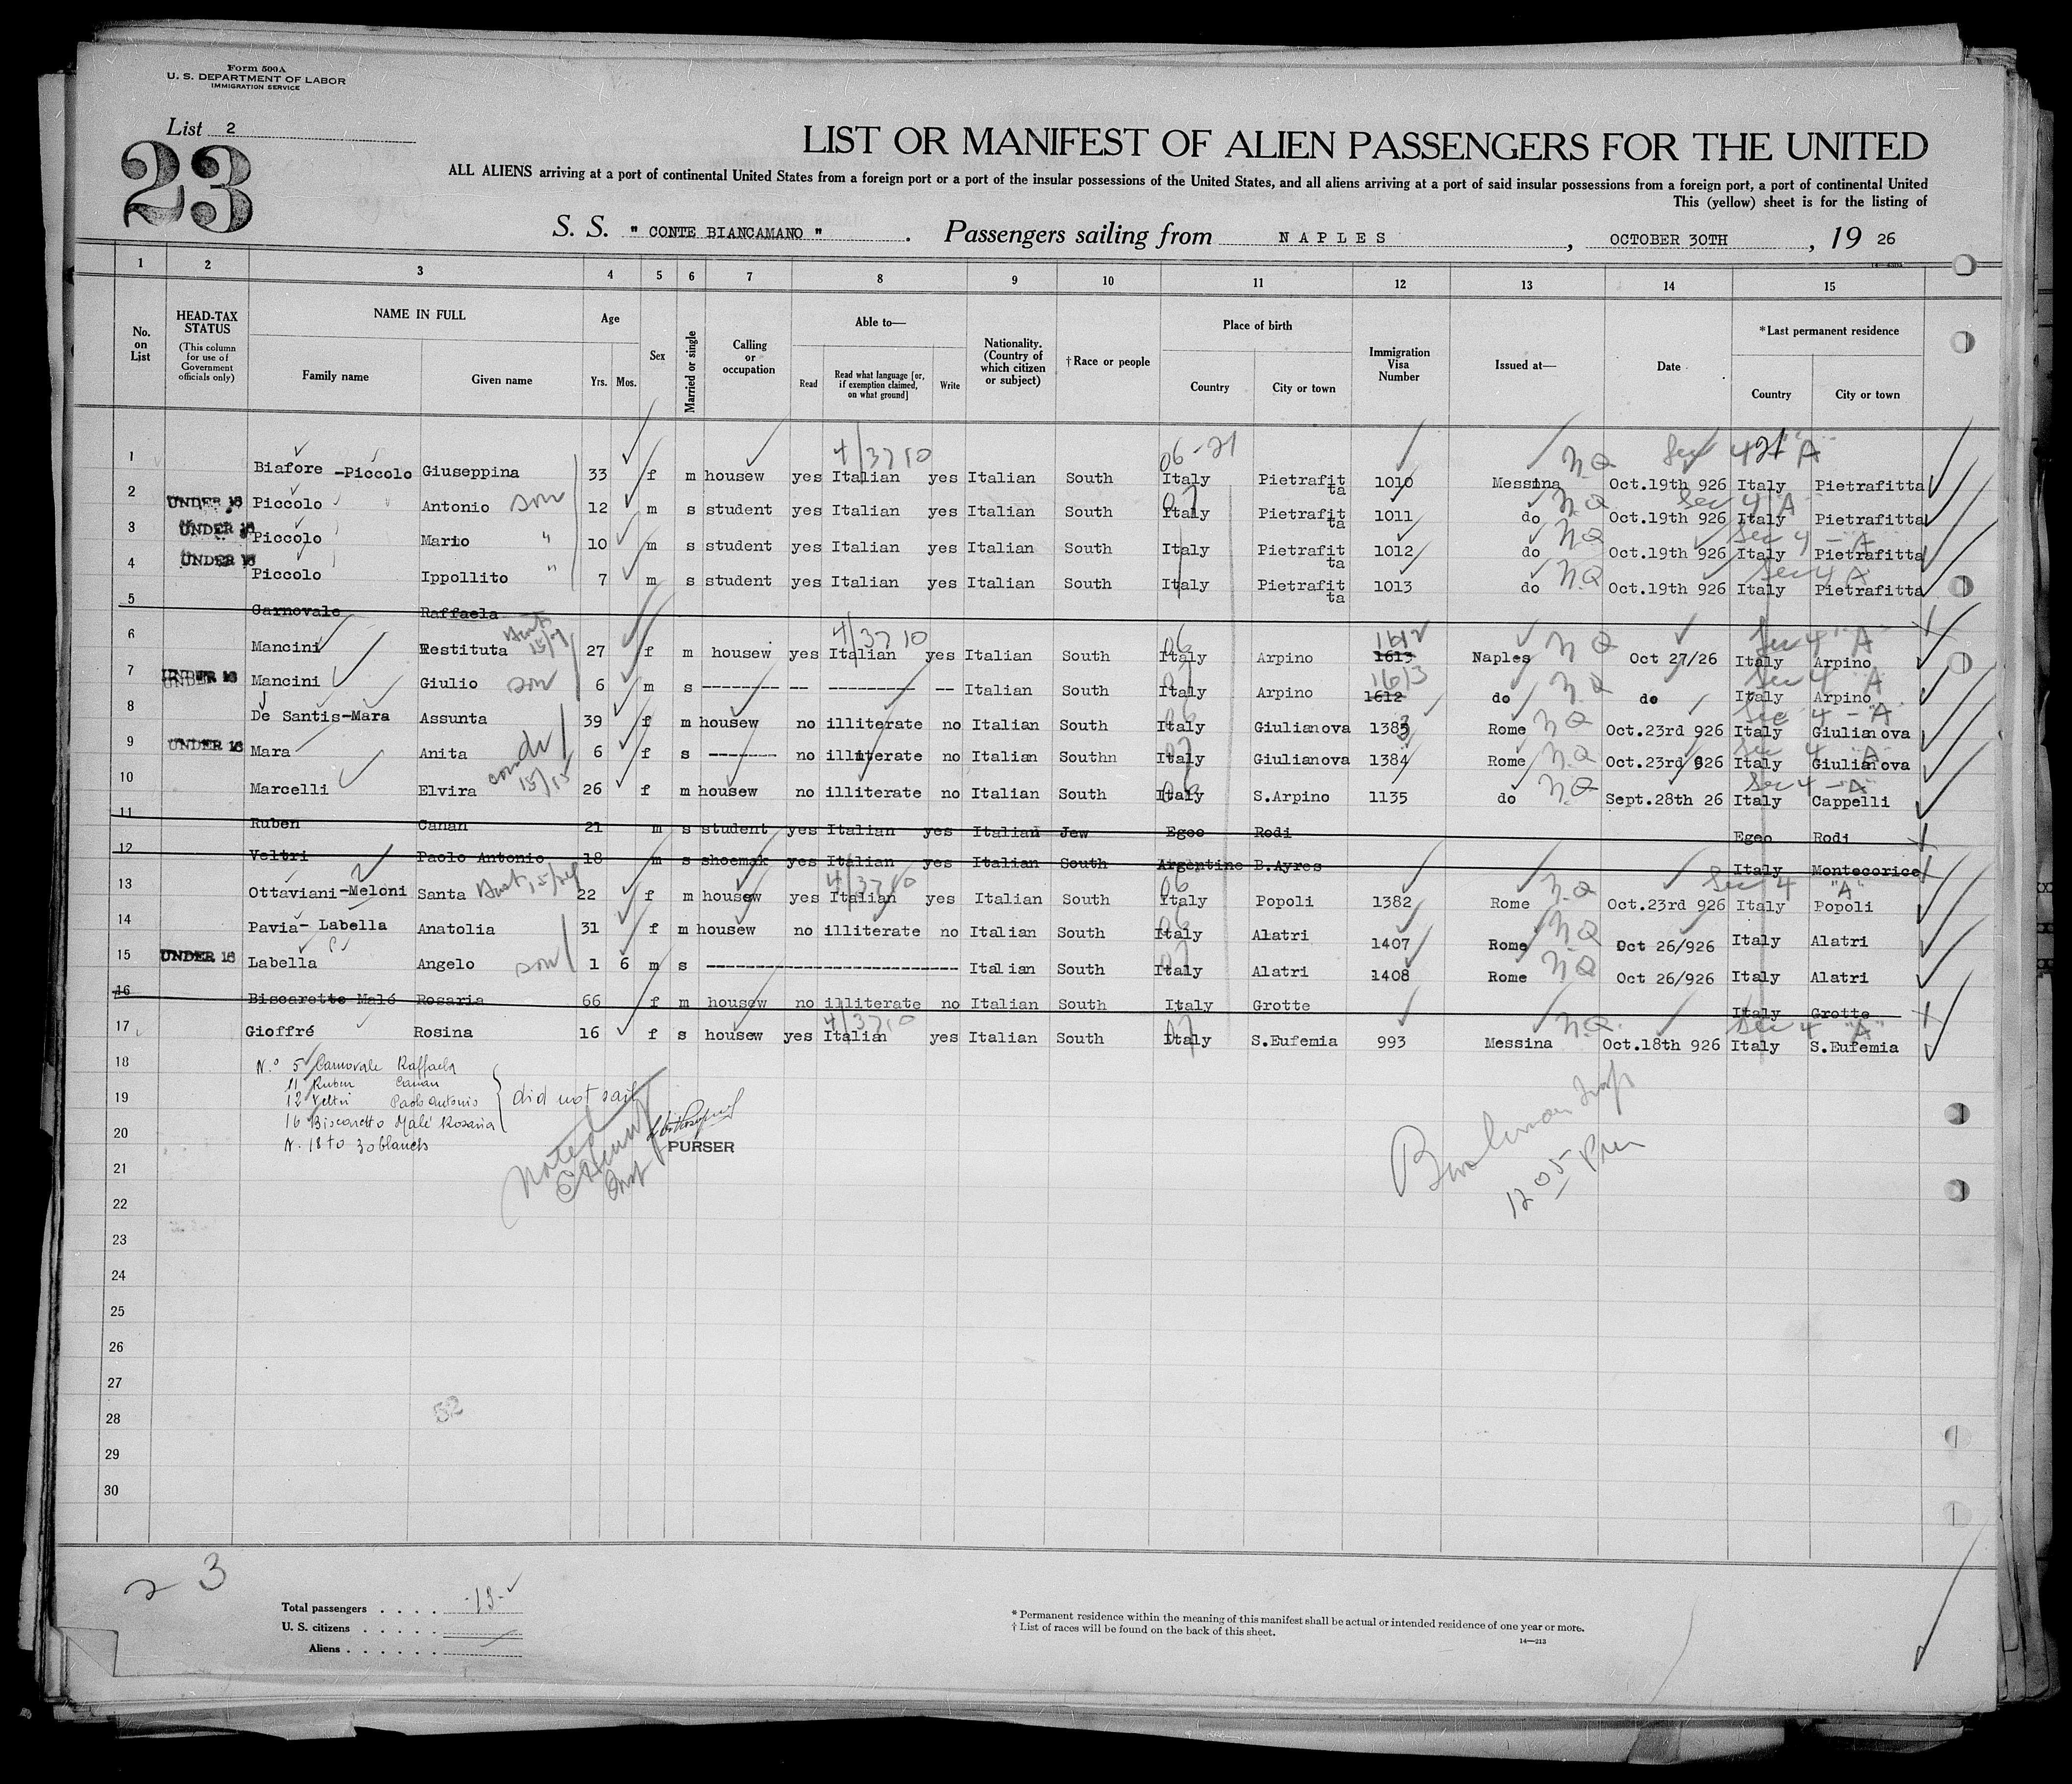 Form 500A
U. S. DEPARTMENT OF LABOR
IMMIGRATION SERVICE
List 2
23
LIST OR MANIFEST OF ALIEN PASSENGERS FOR THE UNITED
ALL ALIENS arriving at a port of continental United States from a foreign port or a port of the insular possessions of the United States, and all aliens arriving at a port of said insular possessions from a foreign port, a port of continental United
This (yellow) sheet is for the listing of
S. S. " CONTE BIANCAMANO " . Passengers sailing from NAPLES , OCTOBER 30TH , 19 26
1 2 3 4 5 6 7 8 9 10 11 12 13 14 15
No. on List
HEAD-TAX STATUS (This column for use of Government officials only)
NAME IN FULL
Family name Given name
Age
Yrs. Mos.
Sex
Married or single
Calling or occupation
Able to—
Read Read what language [or, if exemption claimed, on what ground] Write
Nationality. (Country of which citizen or subject)
†Race or people
Place of birth
Country City or town
Immigration Visa Number
Issued at—
Date
*Last permanent residence
Country City or town
4/3710 06-21 N.Q Sec 4 "A"
1 Biafore -Piccolo Giuseppina 33 f m housew yes Italian yes Italian South Italy Pietrafitta 1010 Messina Oct.19th 926 Italy Pietrafitta
2 UNDER 16 Piccolo Antonio son 12 m s student yes Italian yes Italian South Italy Pietrafitta 1011 do N.Q Oct.19th 926 Sec 4 "A" Italy Pietrafitta
3 UNDER 16 Piccolo Mario " 10 m s student yes Italian yes Italian South Italy Pietrafitta 1012 do N.Q Oct.19th 926 Sec 4 - "A" Italy Pietrafitta
4 UNDER 16 Piccolo Ippollito " 7 m s student yes Italian yes Italian South Italy Pietrafitta 1013 do N.Q Oct.19th 926 Sec 4 A Italy Pietrafitta
5 Carnovale Raffaela
6 Mancini Restituta 27 f m housew yes Italian 4/3710 yes Italian South Italy 06 Arpino 1613 1612 Naples N.Q Oct 27/26 Sec 4 "A" Italy Arpino
7 UNDER 16 Mancini Giulio son 6 m s -------- -- --------- -- Italian South Italy Arpino 1612 1613 do N.Q do Sec 4 "A" Italy Arpino
8 De Santis-Mara Assunta 39 f m housew no illiterate no Italian South Italy Giulianova 1383 Rome N.Q Oct.23rd 926 Sec 4 - "A" Italy Giulianova
9 UNDER 16 Mara Anita 6 f s -------- no illiterate no Italian Southn Italy Giulianova 1384 Rome N.Q Oct.23rd 926 Sec 4 "A" Italy Giulianova
10 Marcelli Elvira 26 f m housew no illiterate no Italian South Italy S.Arpino 1135 do N.Q Sept.28th 26 Sec 4 - "A" Italy Cappelli
11 Ruben Canan 21 m s student yes Italian yes Italian Jew Egeo Rodi Egeo Rodi
12 Veltri Paolo Antonio 18 m s shoemak yes Italian yes Italian South Argentine B.Ayres Italy Montecorice
13 Ottaviani-Meloni Santa 22 f m housew yes Italian 4/3710 yes Italian South Italy 06 Popoli 1382 Rome N.Q Oct.23rd 926 Sec 4 "A" Italy Popoli
14 Pavia- Labella Anatolia 31 f m housew no illiterate no Italian South Italy 06 Alatri 1407 Rome N.Q Oct 26/926 Italy Alatri
15 UNDER 16 Labella Angelo son 1 6 m s ------------------------- Italian South Italy 07 Alatri 1408 Rome N.Q Oct 26/926 Italy Alatri
16 Biscarette Malé Rosaria 66 f m housew no illiterate no Italian South Italy Grotte Italy Grotte
17 Gioffré Rosina 16 f s housew yes Italian 4/3710 yes Italian South Italy 07 S.Eufemia 993 Messina N.Q. Oct.18th 926 Sec 4 "A" Italy S.Eufemia
18 N.° 5 Carnovale Raffaela
11 Ruben Canan
19 12 Veltri Paolo Antonio did not sail
16 Biscaretto Malé Rosaria
20 N. 18 to 30 blancks
PURSER
Noted
Insp
12 05 Pm
21
22
23
24
25
26
27
28 52
29
30
23
Total passengers . . . . 13
U. S. citizens . . . . .
Aliens . . . . . .
* Permanent residence within the meaning of this manifest shall be actual or intended residence of one year or more.
† List of races will be found on the back of this sheet.
14—213